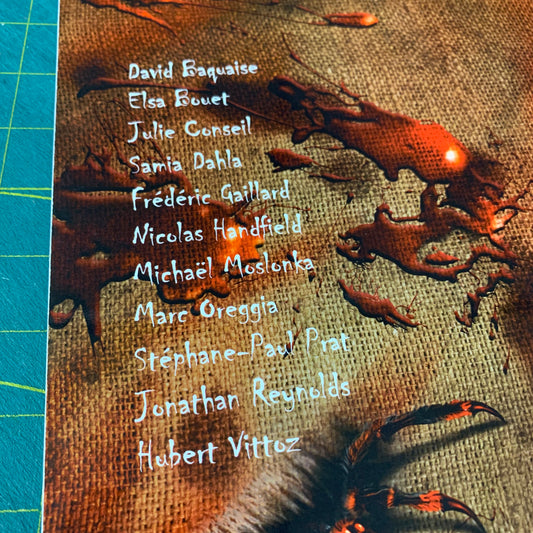 David Baquaise
Elsa Bouet
Julie Conseil
Samia Dahla
Frédéric Gaillard
Nicolas Handfield
Michaël Moslonka
Marc Oreggia
Stéphane-Paul Prat
Jonathan Reynolds
Hubert Vittoz